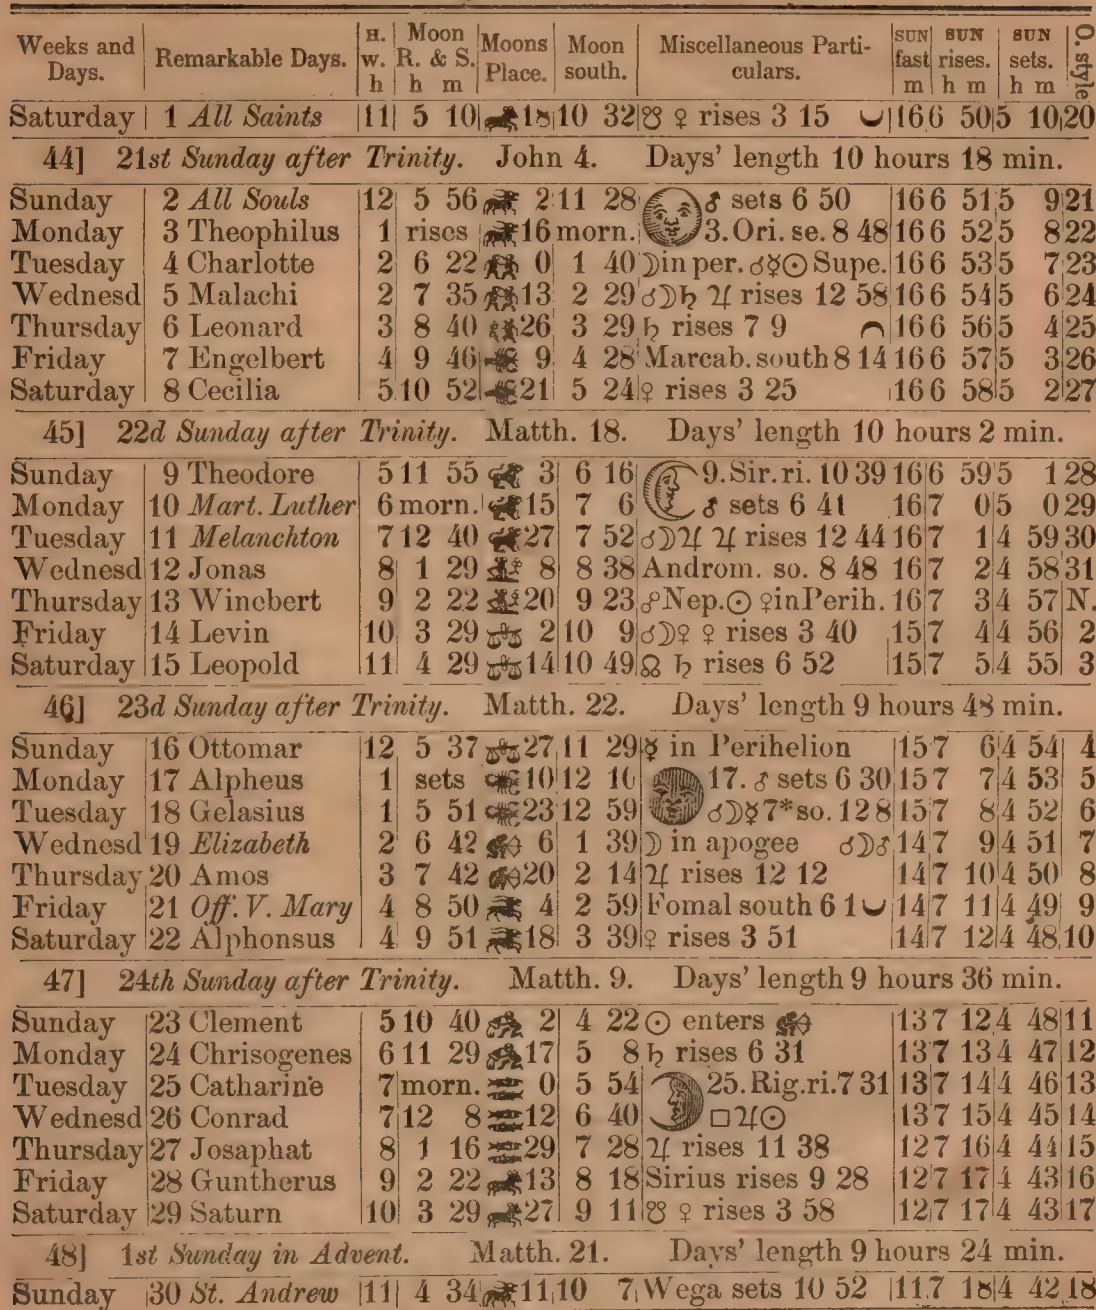 Weeks and Days. Remarkable Days. H. w. h Moon R. & S. h m Moons Place. Moon south. Miscellaneous Particulars. SUN fast m SUN rises. h m SUN sets. h m O. style
Saturday 1 All Saints 11 5 10 18 10 32 ☋ ♀ rises 3 15 16 6 50 5 10 20
44] 21st Sunday after Trinity. John 4. Days' length 10 hours 18 min.
Sunday 2 All Souls 12 5 56 2 11 28 ♂ sets 6 50 16 6 51 5 9 21
Monday 3 Theophilus 1 rises 16 morn. 3. Ori. se. 8 48 16 6 52 5 8 22
Tuesday 4 Charlotte 2 6 22 0 1 40 ☽ in per. ☌☿☉ Supe. 16 6 53 5 7 23
Wednesd 5 Malachi 2 7 35 13 2 29 ☌☽♄ ♃ rises 12 58 16 6 54 5 6 24
Thursday 6 Leonard 3 8 40 26 3 29 ♄ rises 7 9 16 6 56 5 4 25
Friday 7 Engelbert 4 9 46 9 4 28 Marcab. south 8 14 16 6 57 5 3 26
Saturday 8 Cecilia 5 10 52 21 5 24 ♀ rises 3 25 16 6 58 5 2 27
45] 22d Sunday after Trinity. Matth. 18. Days' length 10 hours 2 min.
Sunday 9 Theodore 5 11 55 3 6 16 9. Sir. ri. 10 39 16 6 59 5 1 28
Monday 10 Mart. Luther 6 morn. 15 7 6 ♂ sets 6 41 16 7 0 5 0 29
Tuesday 11 Melanchton 7 12 40 27 7 52 ☌☽♃ ♃ rises 12 44 16 7 1 4 59 30
Wednesd 12 Jonas 8 1 29 8 8 38 Androm. so. 8 48 16 7 2 4 58 31
Thursday 13 Winebert 9 2 22 20 9 23 ☍ Nep. ☉ ♀ in Perih. 16 7 3 4 57 N.
Friday 14 Levin 10 3 29 2 10 9 ☌☽♀ ♀ rises 3 40 15 7 4 4 56 2
Saturday 15 Leopold 11 4 29 14 10 49 ☊ ♄ rises 6 52 15 7 5 4 55 3
46] 23d Sunday after Trinity. Matth. 22. Days' length 9 hours 48 min.
Sunday 16 Ottomar 12 5 37 27 11 29 ☿ in Perihelion 15 7 6 4 54 4
Monday 17 Alpheus 1 sets 10 12 10 17. ♂ sets 6 30 15 7 7 4 53 5
Tuesday 18 Gelasius 1 5 51 23 12 59 ☌☽☿ 7* so. 12 8 15 7 8 4 52 6
Wednesd 19 Elizabeth 2 6 42 6 1 39 ☽ in apogee ☌☽♂ 14 7 9 4 51 7
Thursday 20 Amos 3 7 42 20 2 14 ♃ rises 12 12 14 7 10 4 50 8
Friday 21 Off. V. Mary 4 8 50 4 2 59 Fomal south 6 1 14 7 11 4 49 9
Saturday 22 Alphonsus 4 9 51 18 3 39 ♀ rises 3 51 14 7 12 4 48 10
47] 24th Sunday after Trinity. Matth. 9. Days' length 9 hours 36 min.
Sunday 23 Clement 5 10 40 2 4 22 ☉ enters ♐ 13 7 12 4 48 11
Monday 24 Chrisogenes 6 11 29 17 5 8 ♄ rises 6 31 13 7 13 4 47 12
Tuesday 25 Catharine 7 morn. 0 5 54 25. Rig. ri. 7 31 13 7 14 4 46 13
Wednesd 26 Conrad 7 12 8 12 6 40 □♃☉ 13 7 15 4 45 14
Thursday 27 Josaphat 8 1 16 29 7 28 ♃ rises 11 38 12 7 16 4 44 15
Friday 28 Guntherus 9 2 22 13 8 18 Sirius rises 9 28 12 7 17 4 43 16
Saturday 29 Saturn 10 3 29 27 9 11 ☋ ♀ rises 3 58 12 7 17 4 43 17
48] 1st Sunday in Advent. Matth. 21. Days' length 9 hours 24 min.
Sunday 30 St. Andrew 11 4 34 11 10 7 Wega sets 10 52 11 7 18 4 42 18